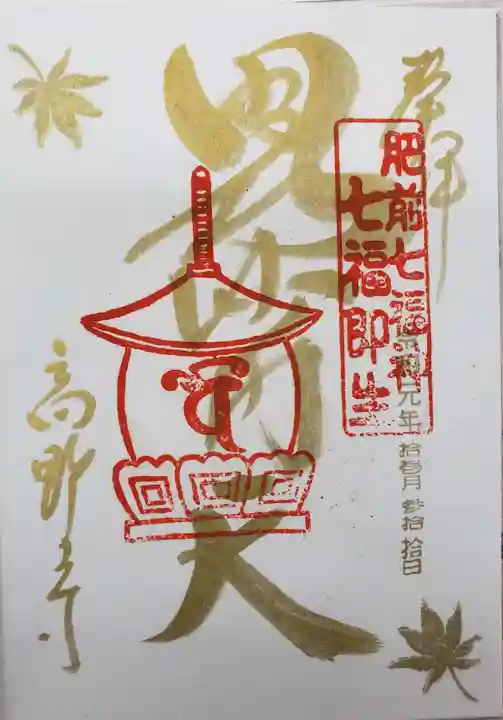 奉拝
肥前七福神
七福即生
令和元年拾壹月参拾拾日
毘沙門天
高野寺